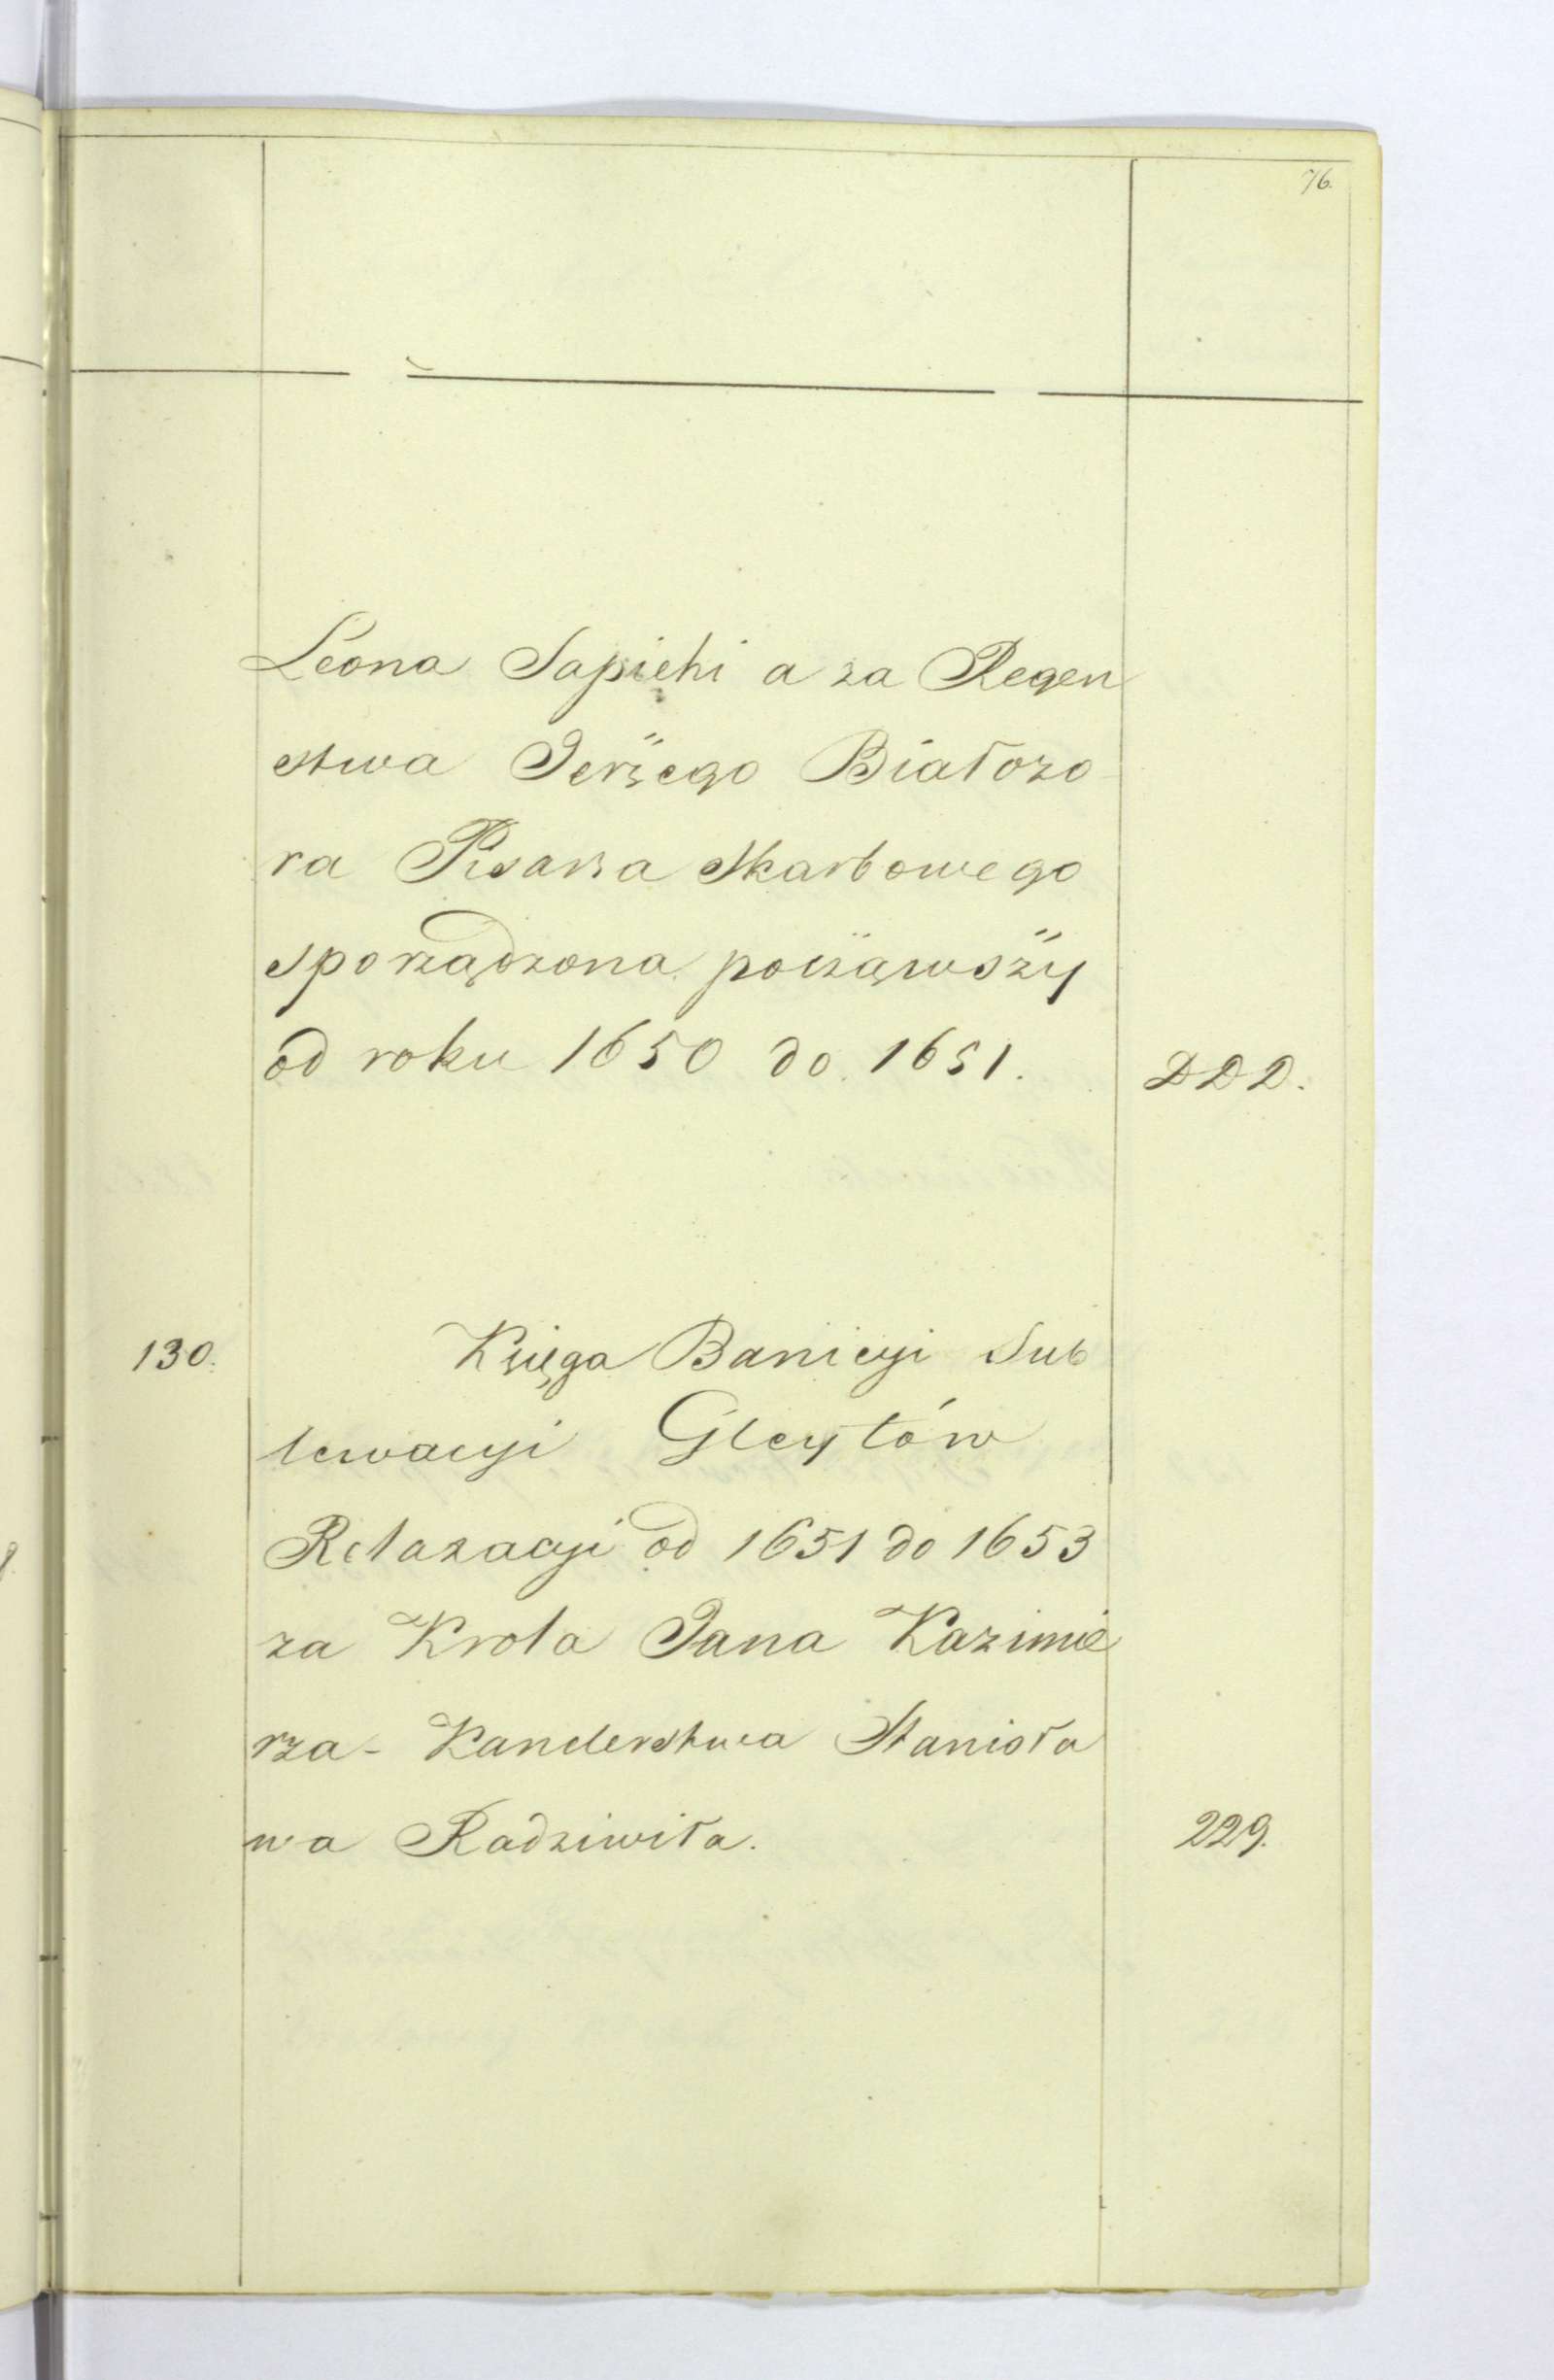 76.
Leona Sapiehi a za Regen
stwa Jerzego Białozo
ra Pisarza Skarbowego
sporządzona począwszy
od roku 1650 do 1651. DDD.
130. Księga Banicyi Sub
lewacyi Gleytów
Relaxacyi od 1651 do 1653
za Krola Jana Kazimie
rza - Kanclerstwa Stanisła
wa Radziwiła. 229.